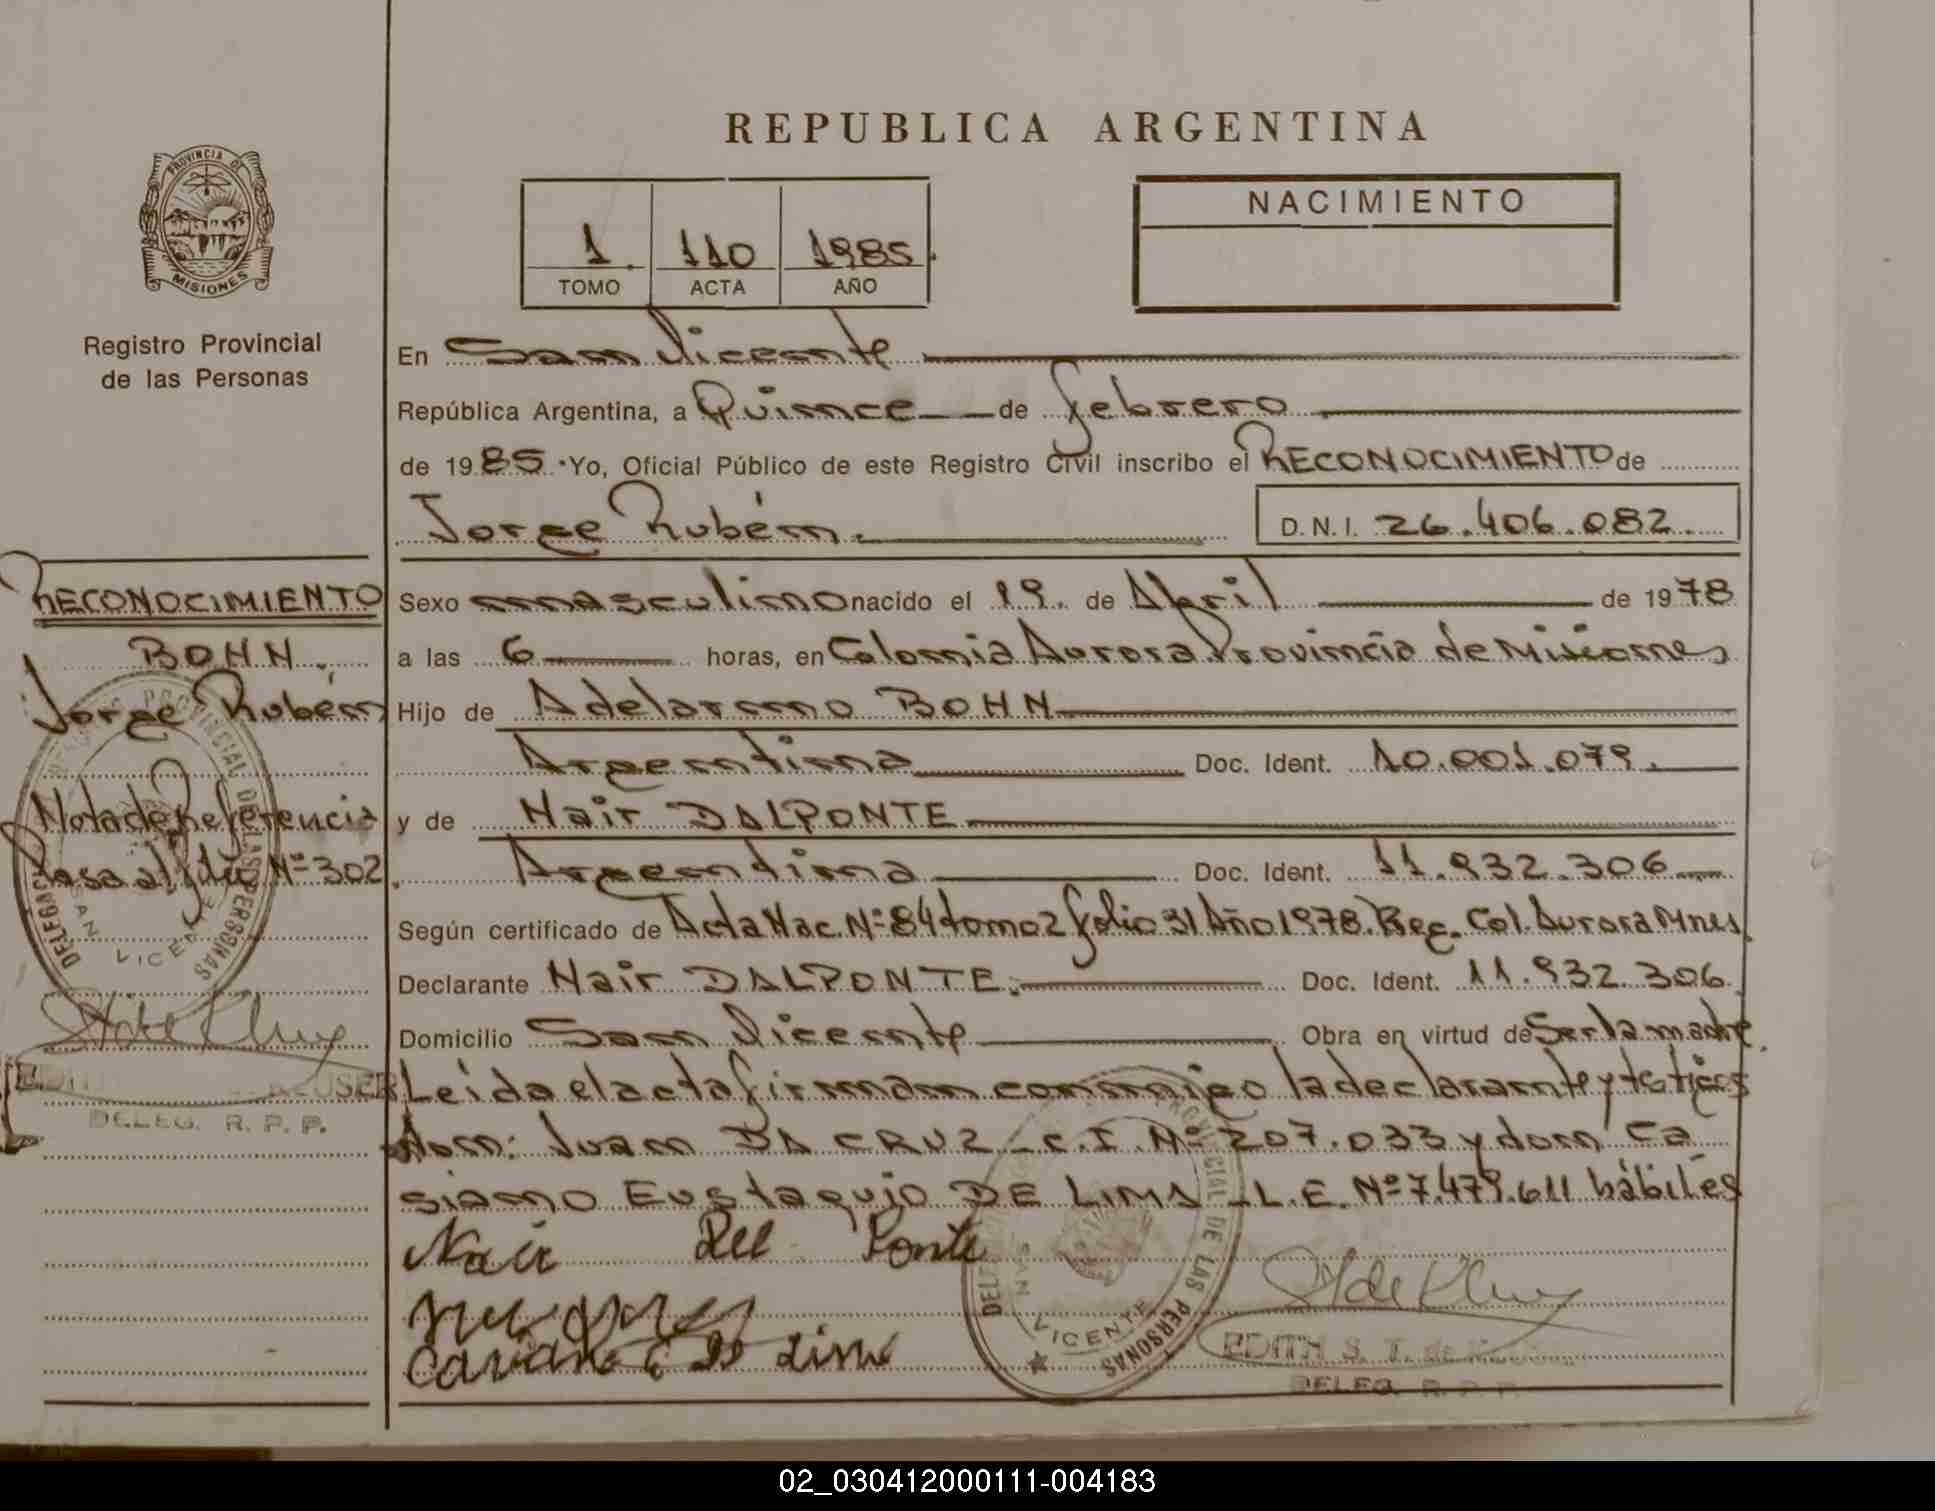 REPUBLICA ARGENTINA
PROVINCIA DE
MISIONES
Registro Provincial
de las Personas
1. 110 1985.
TOMO ACTA AÑO
NACIMIENTO
En San Vicente
República Argentina, a Quince de febrero
de 1985. Yo, Oficial Público de este Registro Civil inscribo el RECONOCIMIENTO de
Jorge Rubén. D.N.I. 26.406.082.
RECONOCIMIENTO
BOHN.
Jorge Rubén
Nota de Referencia
Pasa al folio Nº 302.
Sexo masculino nacido el 19. de Abril de 1978
a las 6 horas, en Colonia Aurora Provincia de Misiones
Hijo de Adelarmo BOHN
Argentina Doc. Ident. 10.001.079.
y de Nair DALPONTE
Argentina Doc. Ident. 11.932.306
Según certificado de Acta Nac. Nº 84 tomo 2 folio 31 Año 1978. Reg. Col. Aurora Mnes.
Declarante Nair DALPONTE. Doc. Ident. 11.932.306.
Domicilio San Vicente Obra en virtud de Ser la madre.
Leída el acta firman conmigo la declarante y testigos
don: Juan DA CRUZ - C.I. Nº 207.033 y don Ca
siano Eustaquio DE LIMA - L.E. Nº 7.479.611 hábiles
Nair Del Ponte
DELEGACION PROVINCIAL DE LAS PERSONAS
SAN VICENTE
EDITH
DELEG. R. P. P.
PROVINCIAL DE LAS PERSONAS
SAN VICENTE
EDITH S. T. de
DELEG. R. P. P.
02_030412000111-004183